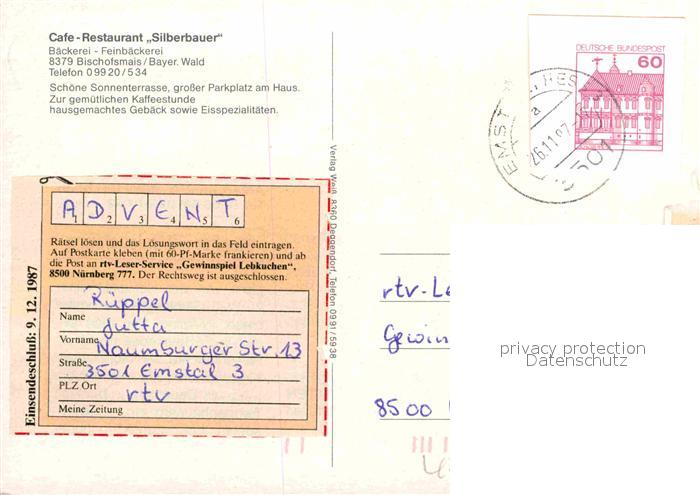 Cafe-Restaurant „Silberbauer“
Bäckerei - Feinbäckerei
8379 Bischofsmais/Bayer. Wald
Telefon 09920/534
Schöne Sonnenterrasse, großer Parkplatz am Haus.
Zur gemütlichen Kaffeestunde
hausgemachtes Gebäck sowie Eisspezialitäten.
DEUTSCHE BUNDESPOST
60
EMST
a
26.11.87
3501
Verlag Weiß, 8360 Deggendorf, Telefon 0991/5938
A D V E N T
1 2 3 4 5 6
Rätsel lösen und das Lösungswort in das Feld eintragen.
Auf Postkarte kleben (mit 60-Pf-Marke frankieren) und ab
die Post an rtv-Leser-Service „Gewinnspiel Lebkuchen“,
8500 Nürnberg 777. Der Rechtsweg ist ausgeschlossen.
Einsendeschluß: 9. 12. 1987
Rüppel
Name
Jutta
Vorname
Naumburger Str. 13
Straße
3501 Emstal 3
PLZ Ort
rtv
Meine Zeitung
rtv-Le
Gewin
8500
privacy protection
Datenschutz